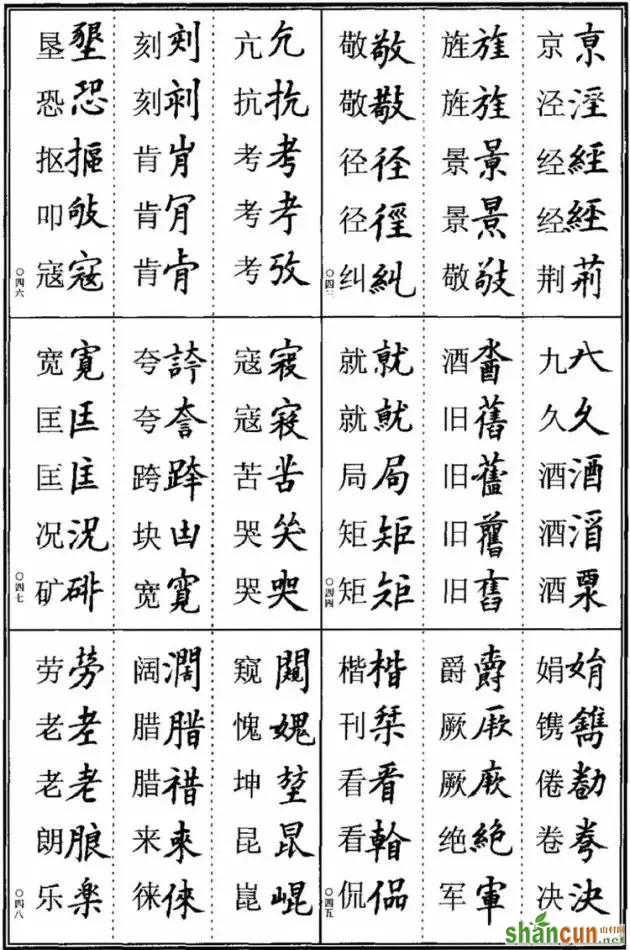 京亰泾涇经經经經荆荊
旌旌旌旌景景景景敬敬
敬敬敬敬径径径徑纠糾
〇四三
九久久酒酒酒酒
酒旧舊旧旧旧
就就就局局矩矩矩矩
〇四四
娟娟镌鐫倦勌卷决決
爵爵厥厥厥绝絶军軍
楷楷刊栞看看看侃侃
〇四五
亢抗抗考考考考攷
刻刻刻肯肯肯肎肯肻
垦墾恐恐抠摳叩敂寇寇
〇四六
寇寇苦苦哭哭哭
夸誇夸跨跨块凷宽寛
宽寛匡匡匡况況矿
〇四七
窥闚愧媿坤堃昆昆崑崐
阔濶腊腊腊来来徕倈
劳勞老老老朗朖乐楽
〇四八
shancun
山村网